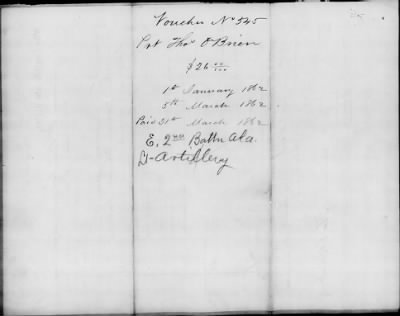 Voucher No 545
Pvt Thos O'Brien
$26 00/100
1st January 1862
5th March 1862
Paid 31st March 1862
E, 2nd Battn Ala.
Lt-Artillery